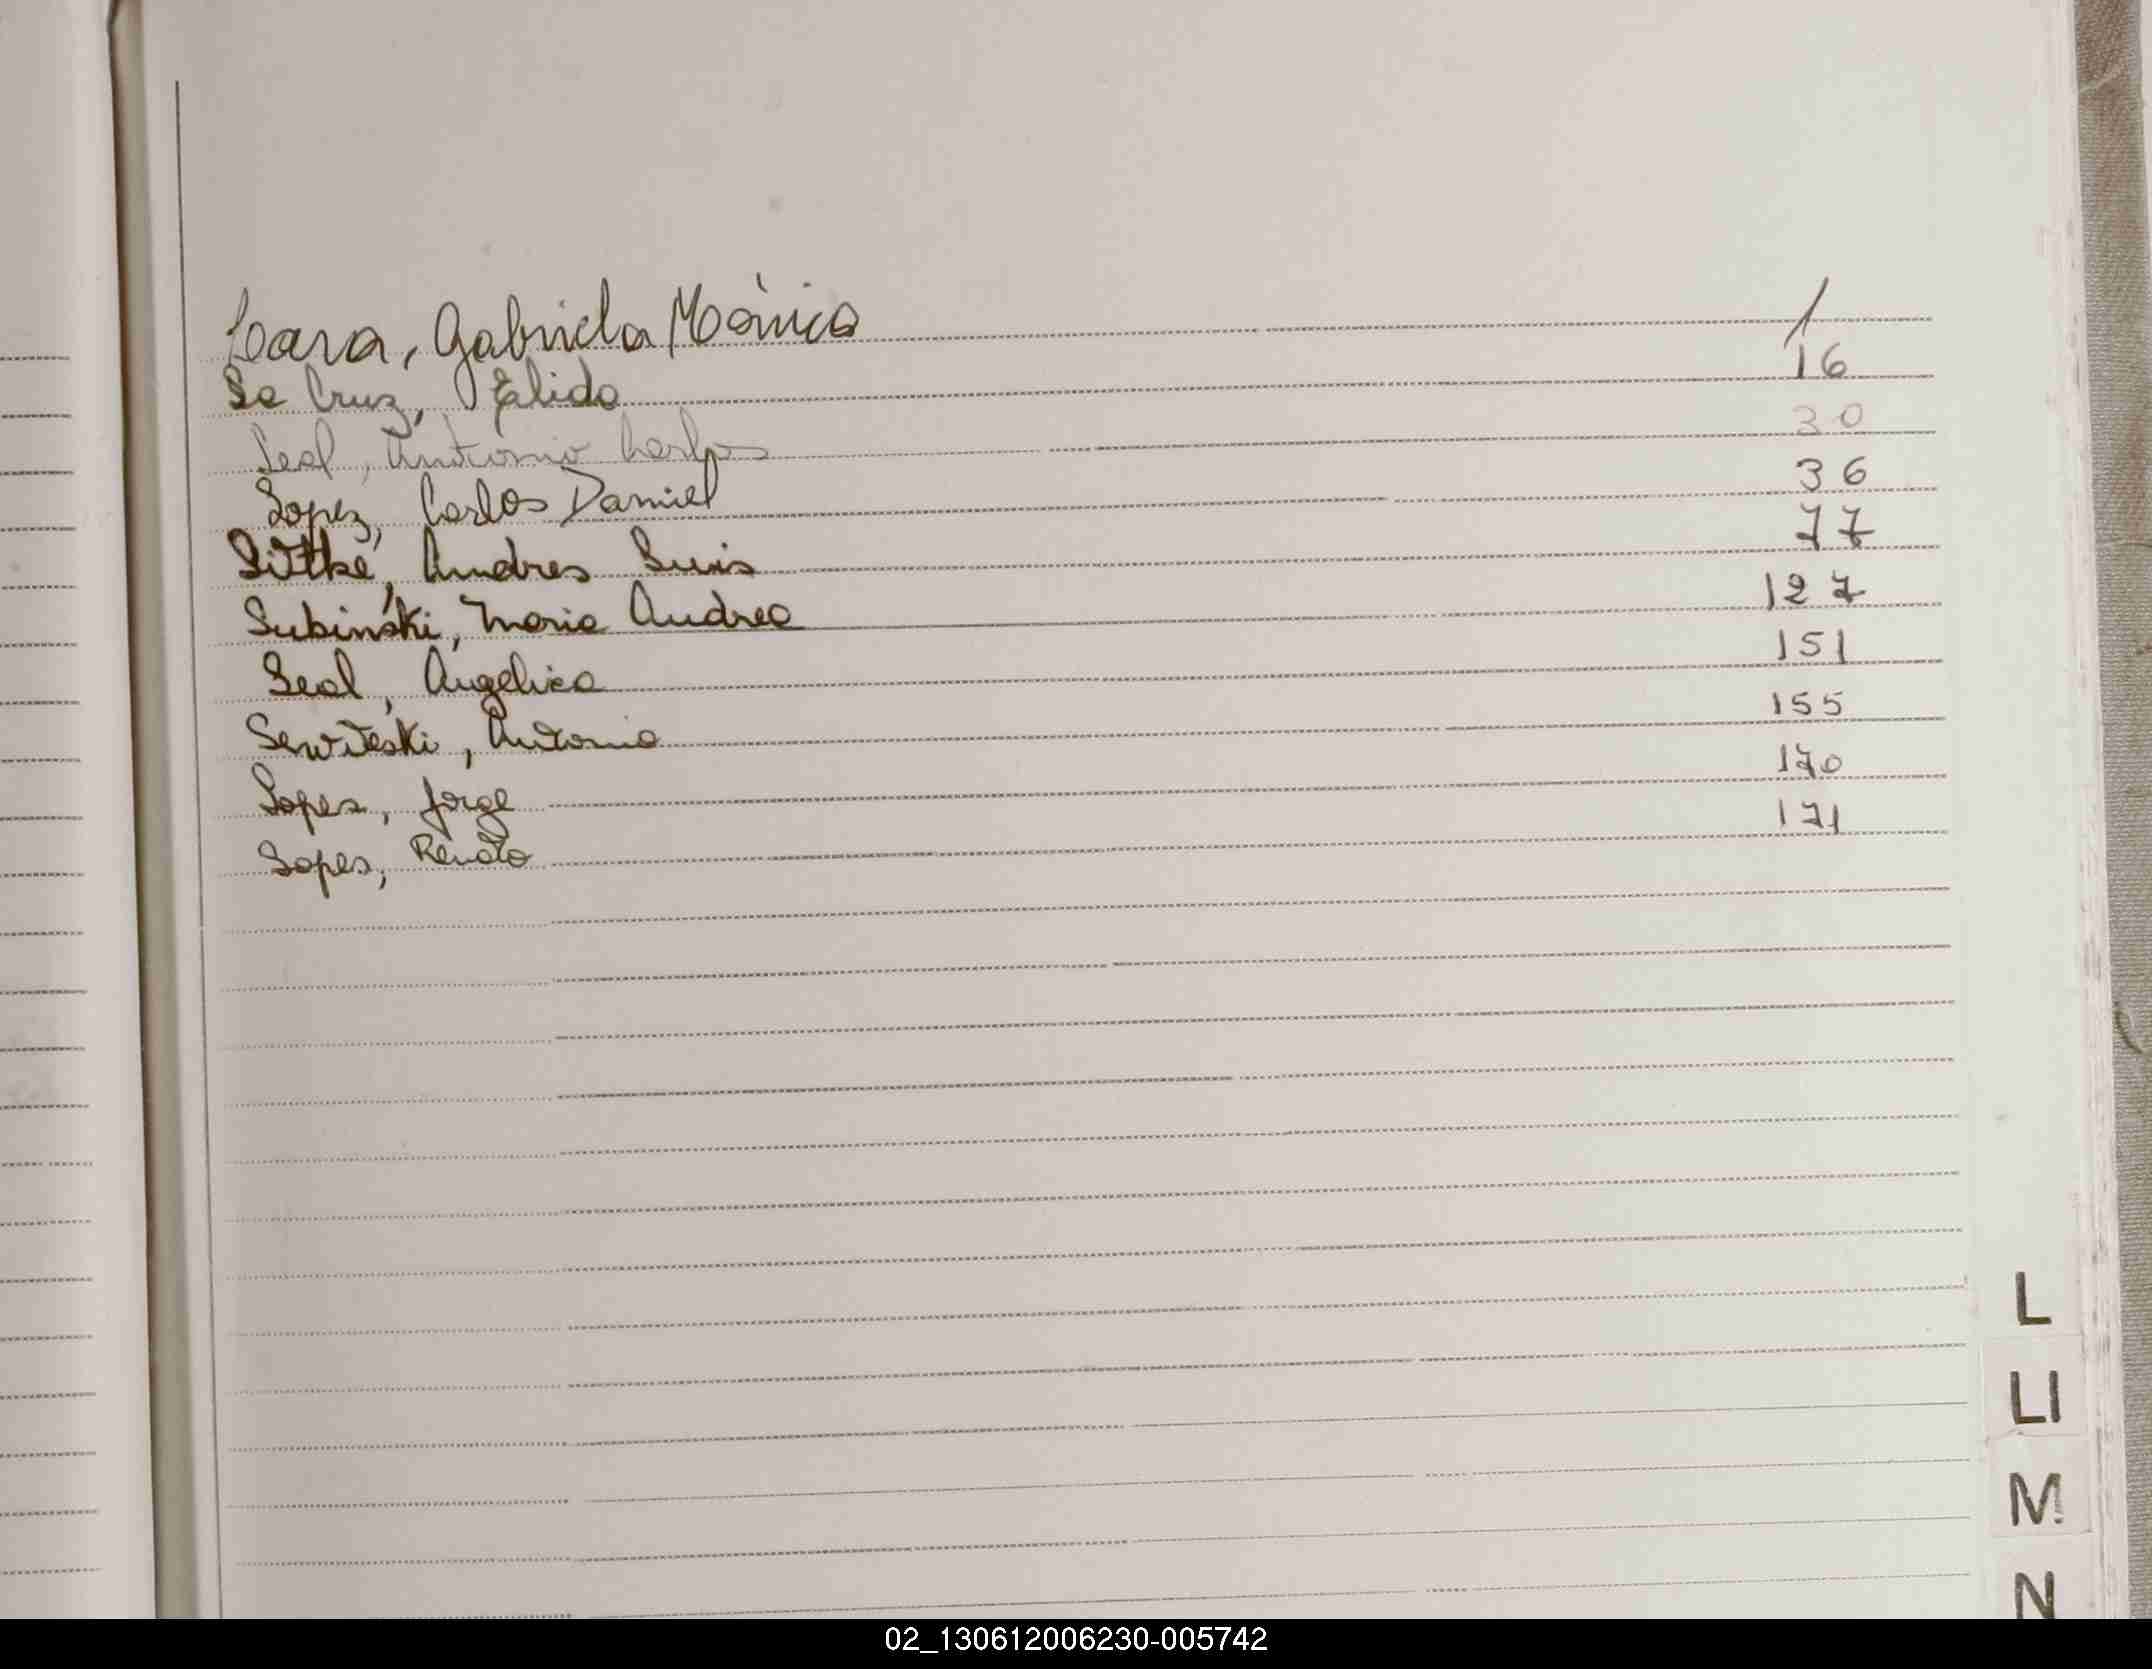 Lara, Gabriela Mónica 1
La Cruz, Elida 16
Leal, Antonio Carlos 30
Lopez, Carlos Daniel 36
Littke, Andres Luis 77
Lubinski, Maria Andrea 127
Leal, Angelica 151
Lewiteski, Antonio 155
Lopes, Jorge 170
Lopes, Renato 171
L
LI
M
N
02_130612006230-005742